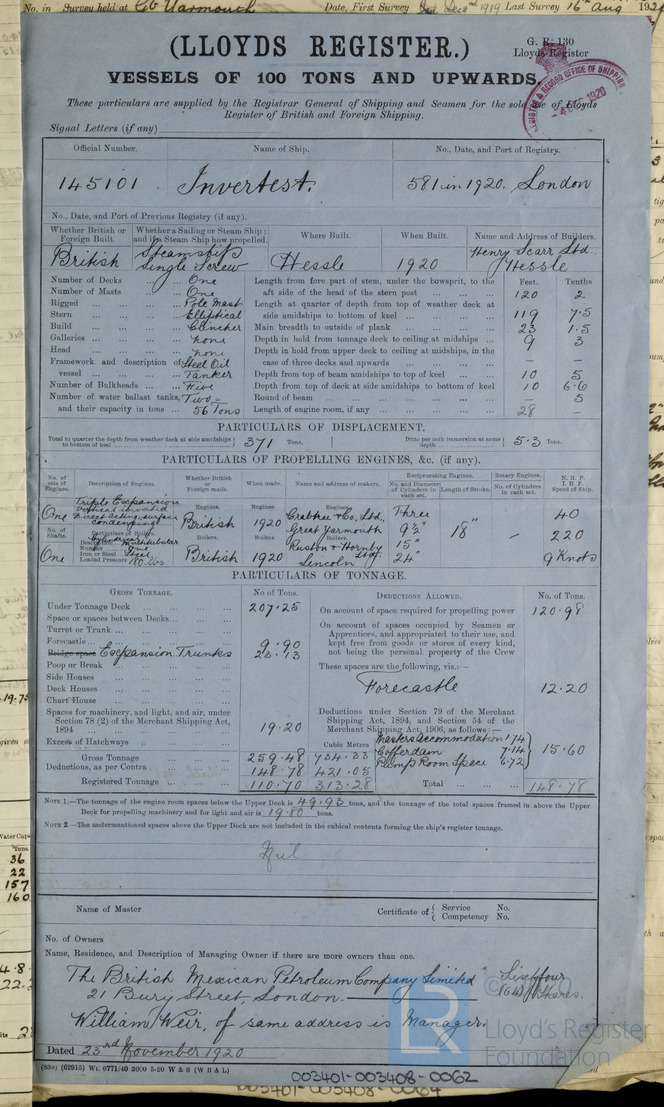 No. in Survey held at Gt Yarmouth Date, First Survey Dec 1919 Last Survey 16th Aug 192
(LLOYDS REGISTER.)
G. R. 130
Lloyds Register
VESSELS OF 100 TONS AND UPWARDS
REGISTER & RECORD OFFICE OF SHIPPING
1920
These particulars are supplied by the Registrar General of Shipping and Seamen for the sole use of Lloyds
Register of British and Foreign Shipping.
Signal Letters (if any)
Official Number. Name of Ship. No., Date, and Port of Registry.
145101 Invertest. 581 in 1920. London
No., Date, and Port of Previous Registry (if any).
Whether British or Foreign Built. Whether a Sailing or Steam Ship; and if a Steam Ship how propelled. Where Built. When Built. Name and Address of Builders.
British Steamship Single Screw Hessle 1920 Henry Scarr Ltd. Hessle
Number of Decks ... One
Number of Masts ... One
Rigged ... Pole Mast
Stern ... Elliptical
Build ... Clincher
Galleries ... none
Head ... none
Framework and description of vessel ... Steel Oil Tanker
Number of Bulkheads ... Five
Number of water ballast tanks, Two
and their capacity in tons ... 56 Tons
Feet. Tenths
Length from fore part of stem, under the bowsprit, to the
aft side of head of the stern post ... 120 2
Length at quarter of depth from top of weather deck at
side amidships to bottom of keel ... 119 7.5
Main breadth to outside of plank ... 23 1.5
Depth in hold from tonnage deck to ceiling at midships ... 9 3
Depth in hold from upper deck to ceiling at midships, in the
case of three decks and upwards ... — —
Depth from top of beam amidships to top of keel ... 10 5
Depth from top of deck at side amidships to bottom of keel 10 6.6
Round of beam ... — 5
Length of engine room, if any ... 28 —
PARTICULARS OF DISPLACEMENT.
Total to quarter the depth from weather deck at side amidships to bottom of keel 371 Tons. Ditto per inch immersion at same depth 5.3 Tons.
PARTICULARS OF PROPELLING ENGINES, &c. (if any).
No. of sets of Engines. Description of Engines. Whether British or Foreign made. When made. Name and address of makers. Reciprocating Engines. No. and Diameter of Cylinders in each set. Length of Stroke. Rotary Engines. No. of Cylinders in each set. N. H. P. I. H. P. Speed of Ship.
One Triple Expansion Vertical inverted Direct acting surface condensing
Engines. British Engines. 1920 Engines. Crabtree & Co. Ltd., Great Yarmouth Three 9½" 15" 24" 18" — 40 220 9 Knots
No. of Shafts. One Particulars of Boilers. Description Number One Iron or Steel Steel Loaded Pressure 180 lbs
Boilers. British Boilers 1920 Boilers. Ruston & Hornby Ltd., Lincoln
PARTICULARS OF TONNAGE.
GROSS TONNAGE. No of Tons.
Under Tonnage Deck ... 207.25
Space or spaces between Decks ...
Turret or Trunk ...
Forecastle ... 9.90
Bridge space Expansion Trunks 23.13
Poop or Break ...
Side Houses ...
Deck Houses ...
Chart House ...
Spaces for machinery, and light, and air, under
Section 78 (2) of the Merchant Shipping Act,
1894 ... 19.20
Excess of Hatchways ... Cubic Metres
Gross Tonnage ... 259.48 734.33
Deductions, as per Contra ... 148.78 421.05
Registered Tonnage ... 110.70 313.28
DEDUCTIONS ALLOWED. No. of Tons.
On account of space required for propelling power 120.98
On account of spaces occupied by Seamen or
Apprentices, and appropriated to their use, and
kept free from goods or stores of every kind,
not being the personal property of the Crew
These spaces are the following, viz.:—
Forecastle 12.20
Deductions under Section 79 of the Merchant
Shipping Act, 1894, and Section 54 of the
Merchant Shipping Act, 1906, as follows:—
Masters Accommodation 1.74
Cofferdam 7.14
Pump Room Space 6.72
15.60
Total ... 148.78
NOTE 1.—The tonnage of the engine room spaces below the Upper Deck is 49.93 tons, and the tonnage of the total spaces framed in above the Upper
Deck for propelling machinery and for light and air is 19.80 tons.
NOTE 2.—The undermentioned spaces above the Upper Deck are not included in the cubical contents forming the ship's register tonnage.
Nil
Name of Master Certificate of { Service No. Competency No.
No. of Owners
Name, Residence, and Description of Managing Owner if there are more owners than one.
The British Mexican Petroleum Company Limited Sixty four
21 Bury Street, London. (64) Shares.
William Weir, of same address is Manager.
Dated 23rd November 1920
(83o) (62915) Wt. 6771/40 2000 5-20 W & S (W B & L)
LR
Lloyd's Register
Foundation
003401-003408-0062
19.75
Tons
36
22
157
160